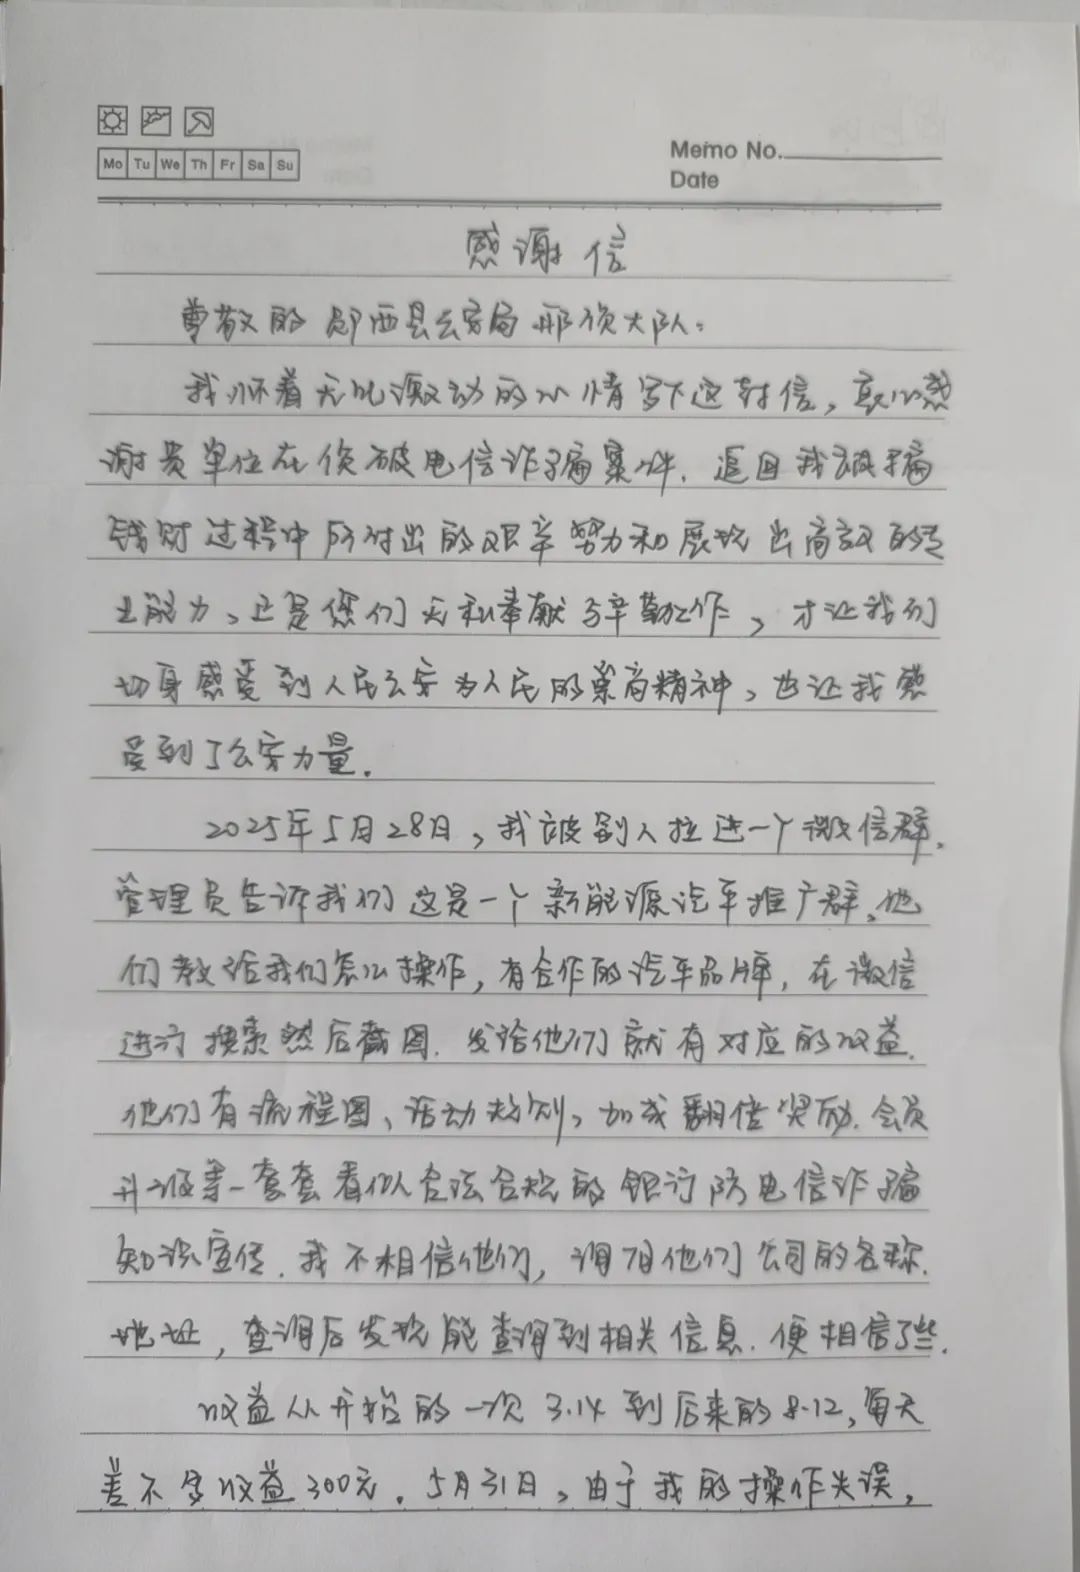 Mo Tu We Th Fr Sa Su
Memo No.
Date
感谢信
尊敬的郧西县公安局刑侦大队：
我怀着无比激动的心情写下这封信，衷心感
谢贵单位在侦破电信诈骗案件、追回我被骗
钱财过程中所付出的艰辛努力和展现出高效的专
业能力、正是您们无私奉献与辛勤工作，才让我们
切身感受到人民公安为人民的崇高精神，也让我感
受到了公安力量.
2025年5月28日，我被别人拉进一个微信群.
管理员告诉我们这是一个新能源汽车推广群、他
们教给我们怎么操作，有合作的汽车品牌，在微信
进行搜索然后截图.发给他们就有对应的收益.
他们有流程图、活动规则，加或翻倍奖励.会员
升级等一套套看似合法合规的银行防电信诈骗
知识宣传.我不相信他们，询问他们公司的名称.
地址，查询后发现能查询到相关信息.便相信了些.
收益从开始的一次3.14到后来的8.12，每天
差不多收益300元.5月31日，由于我的操作失误，